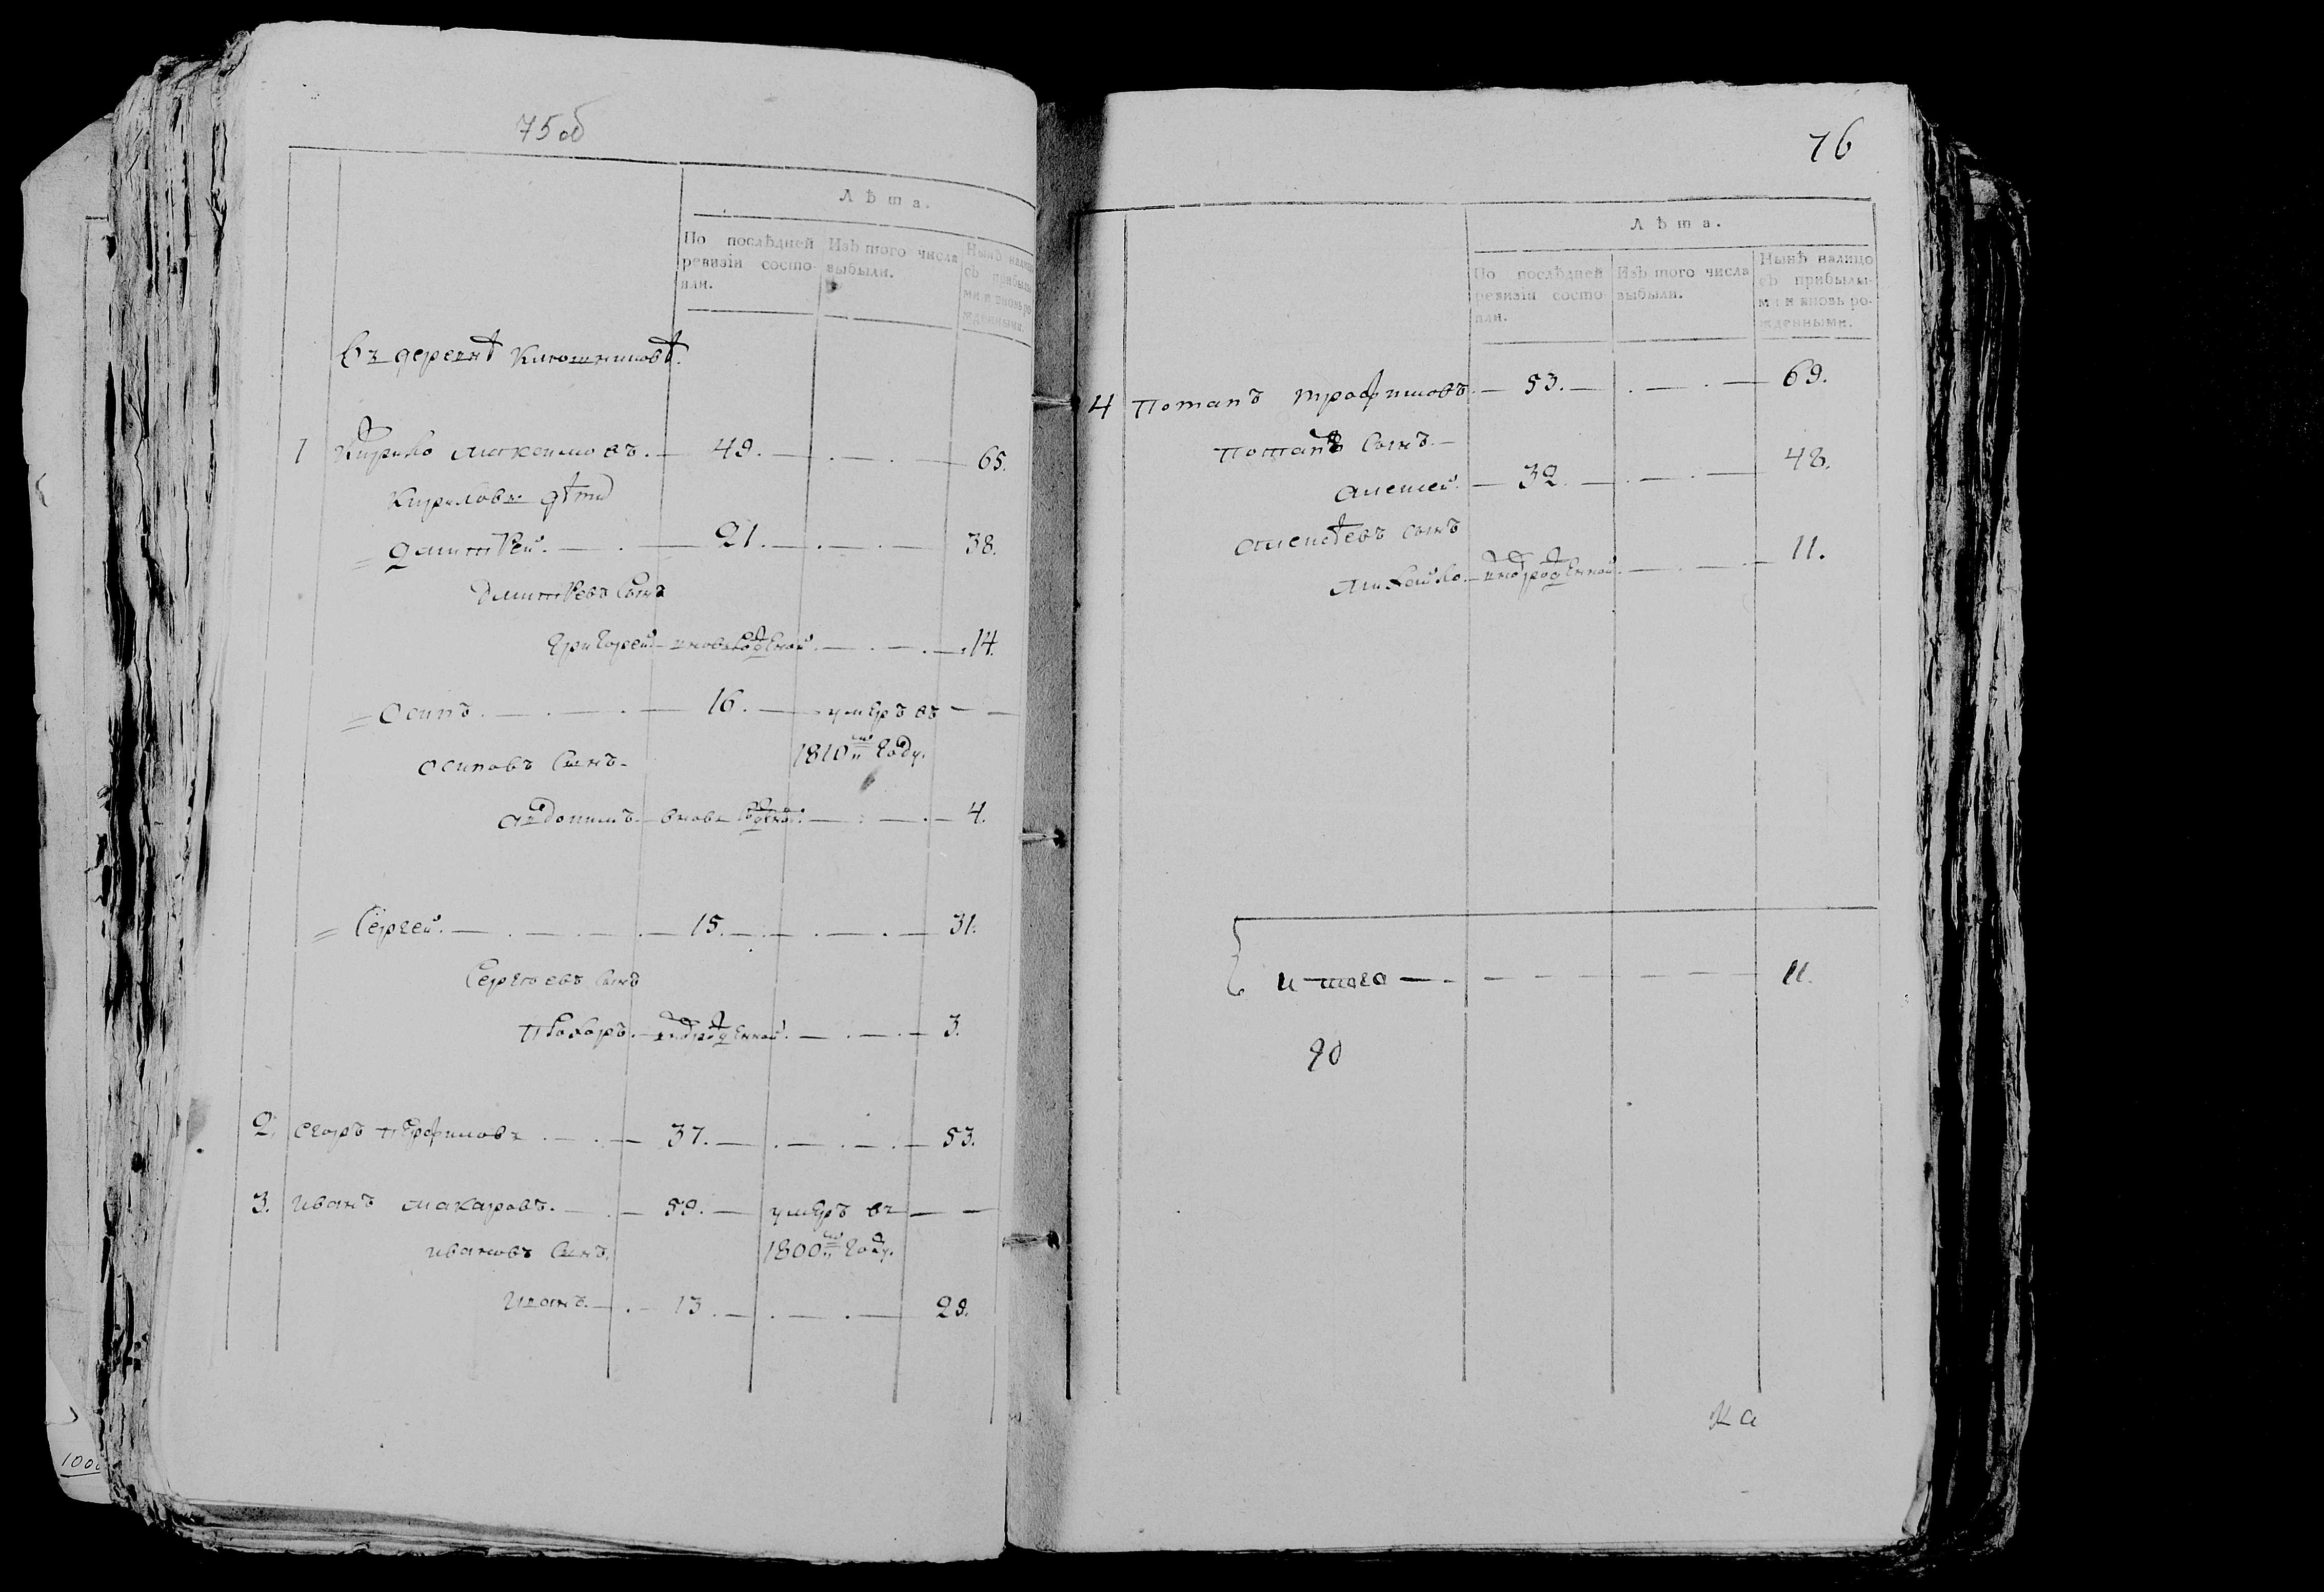 75 об
Лѣта.
По послѣдней ревизіи состояли.
Изъ того числа выбыли.
Нынѣ налицо съ прибылыми и вновь рожденными.
въ деревнѣ
1 Кирило Максимовъ. 49. 65.
Кириловы дѣти
Дмитрей. 21. 38.
Дмитревъ сынъ
Григорей вновьрожденой 14.
Осипъ. 16. умеръ въ
1810м году.
Осиповъ сынъ
вновь рожденой 4.
Сергей. 15. 31.
Сергѣевъ сынъ
Прохоръ. вновьрожденной 3.
2. Егоръ 37. 53.
3. Иванъ Макаровъ. 59. умеръ въ
Ивановъ сынъ 1800м году.
Иванъ. 13. 29.
76
Лѣта.
По послѣдней ревизіи состояли.
Изъ того числа выбыли.
Нынѣ налицо съ прибылыми и вновь рожденными.
4 Потапъ Трофимовъ 53. 69.
Потаповъ сынъ
Алексей. 32. 48.
Алексѣевъ сынъ
Михайло вновьрожденной 11.
Итого 11.
1000